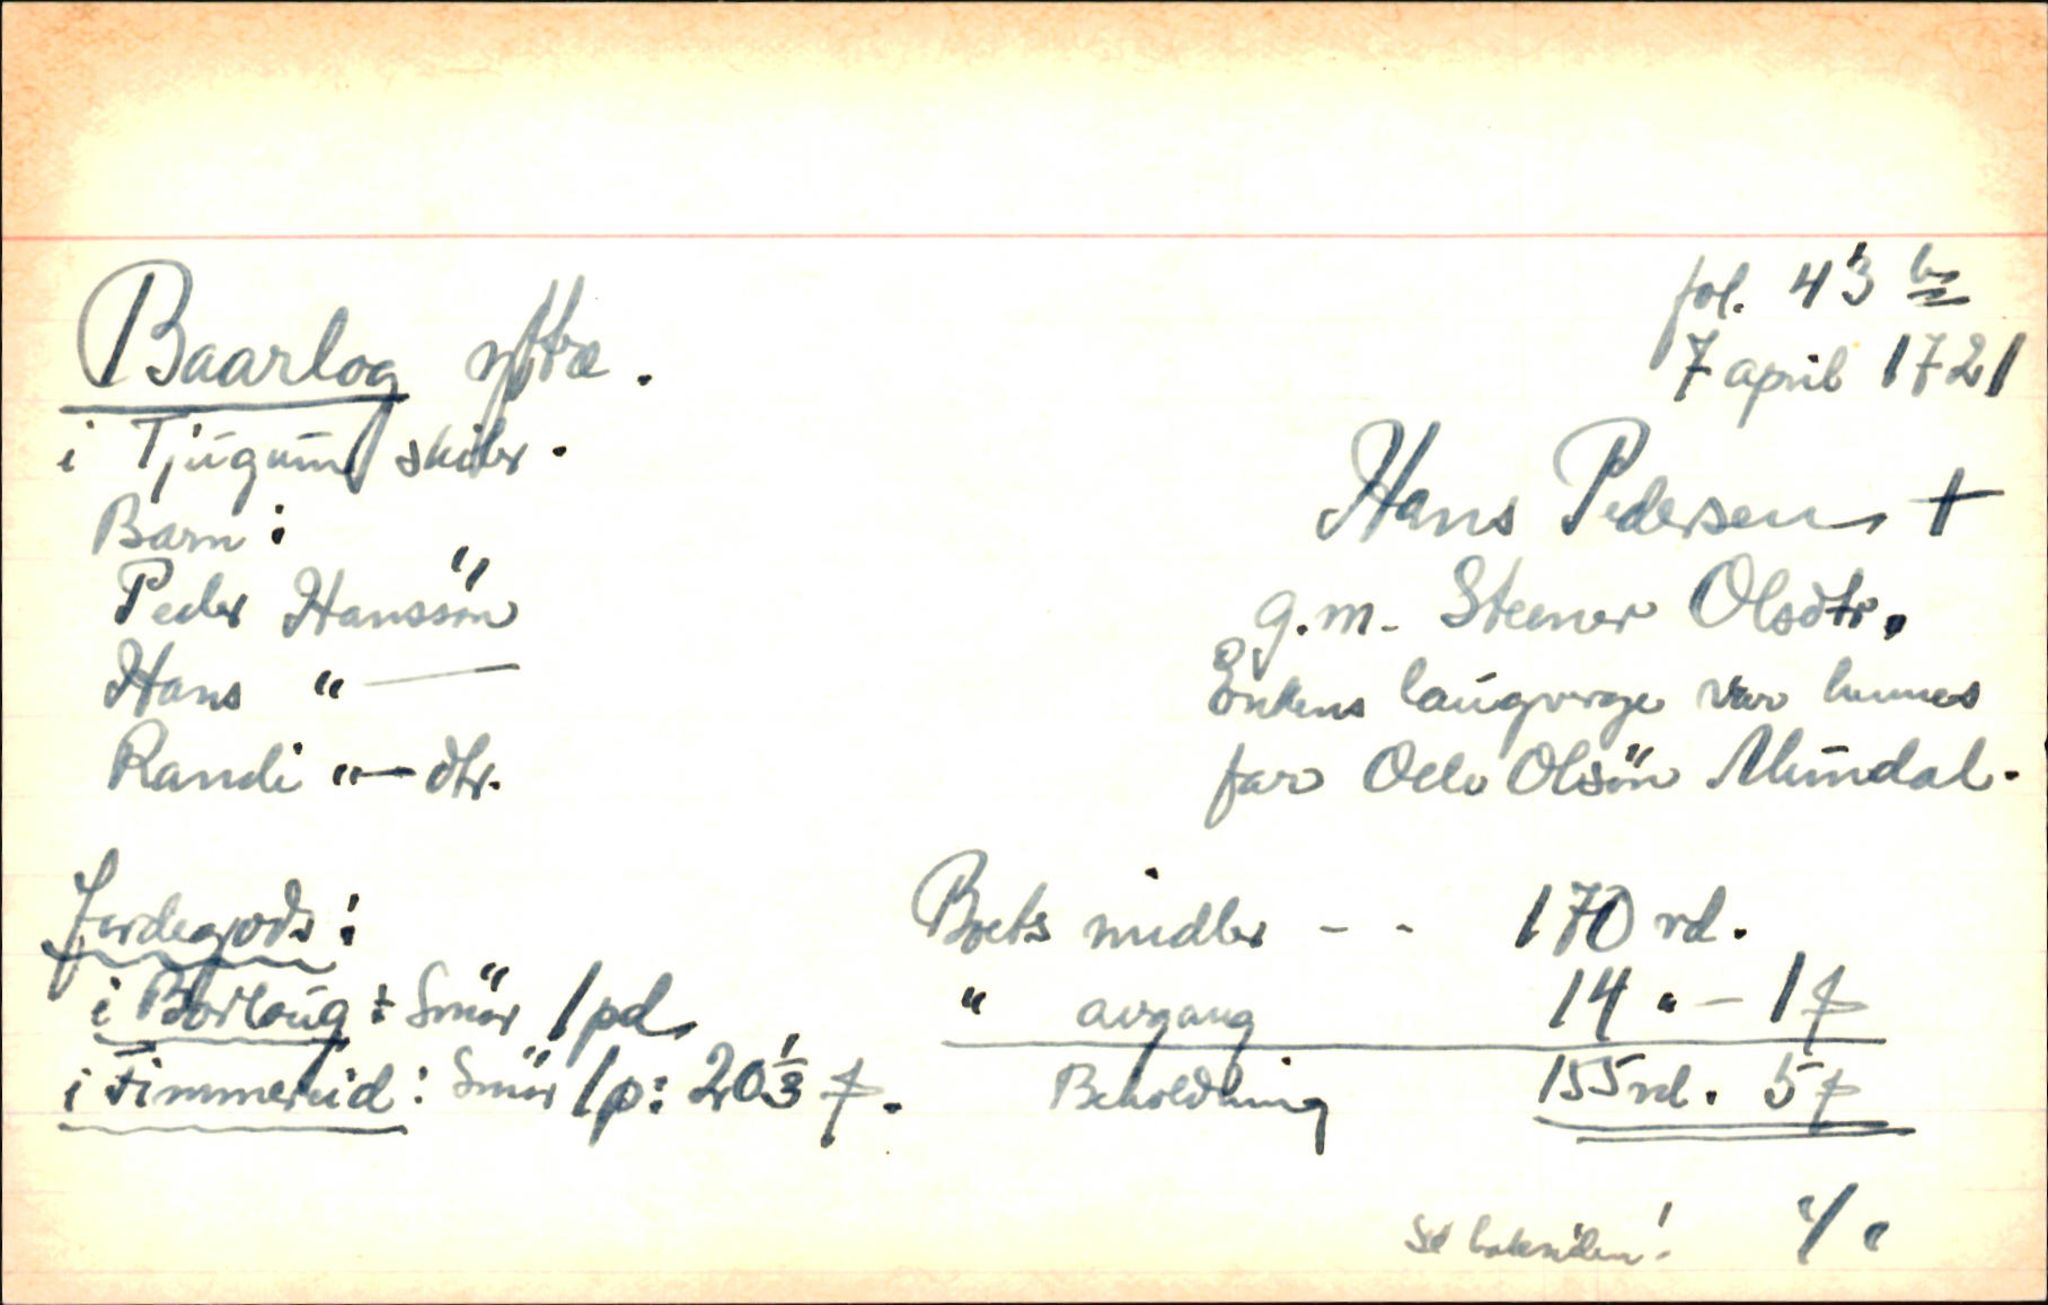 fol. 43 b
Baarlog yttre.
7 april 1721
i Tjugum skibr.
Hans Pedersen +
Barn:
Peder Hanssön
g.m. Steenor Olsdtr.
Hans "—
Enkens laugverge var hennes
Randi "— dtr.
far Oele Olsön Mundal.
Jordegods:
Boets midler - - 170 rd.
i Borlaug: Smör 1 pd.
" avgang 14 " - 1 ƒ
i Timmereid: Smör 1 p: 20 1/3 ƒ.
Beholdning 155 rd. 5 ƒ
Se baksiden! ·/·